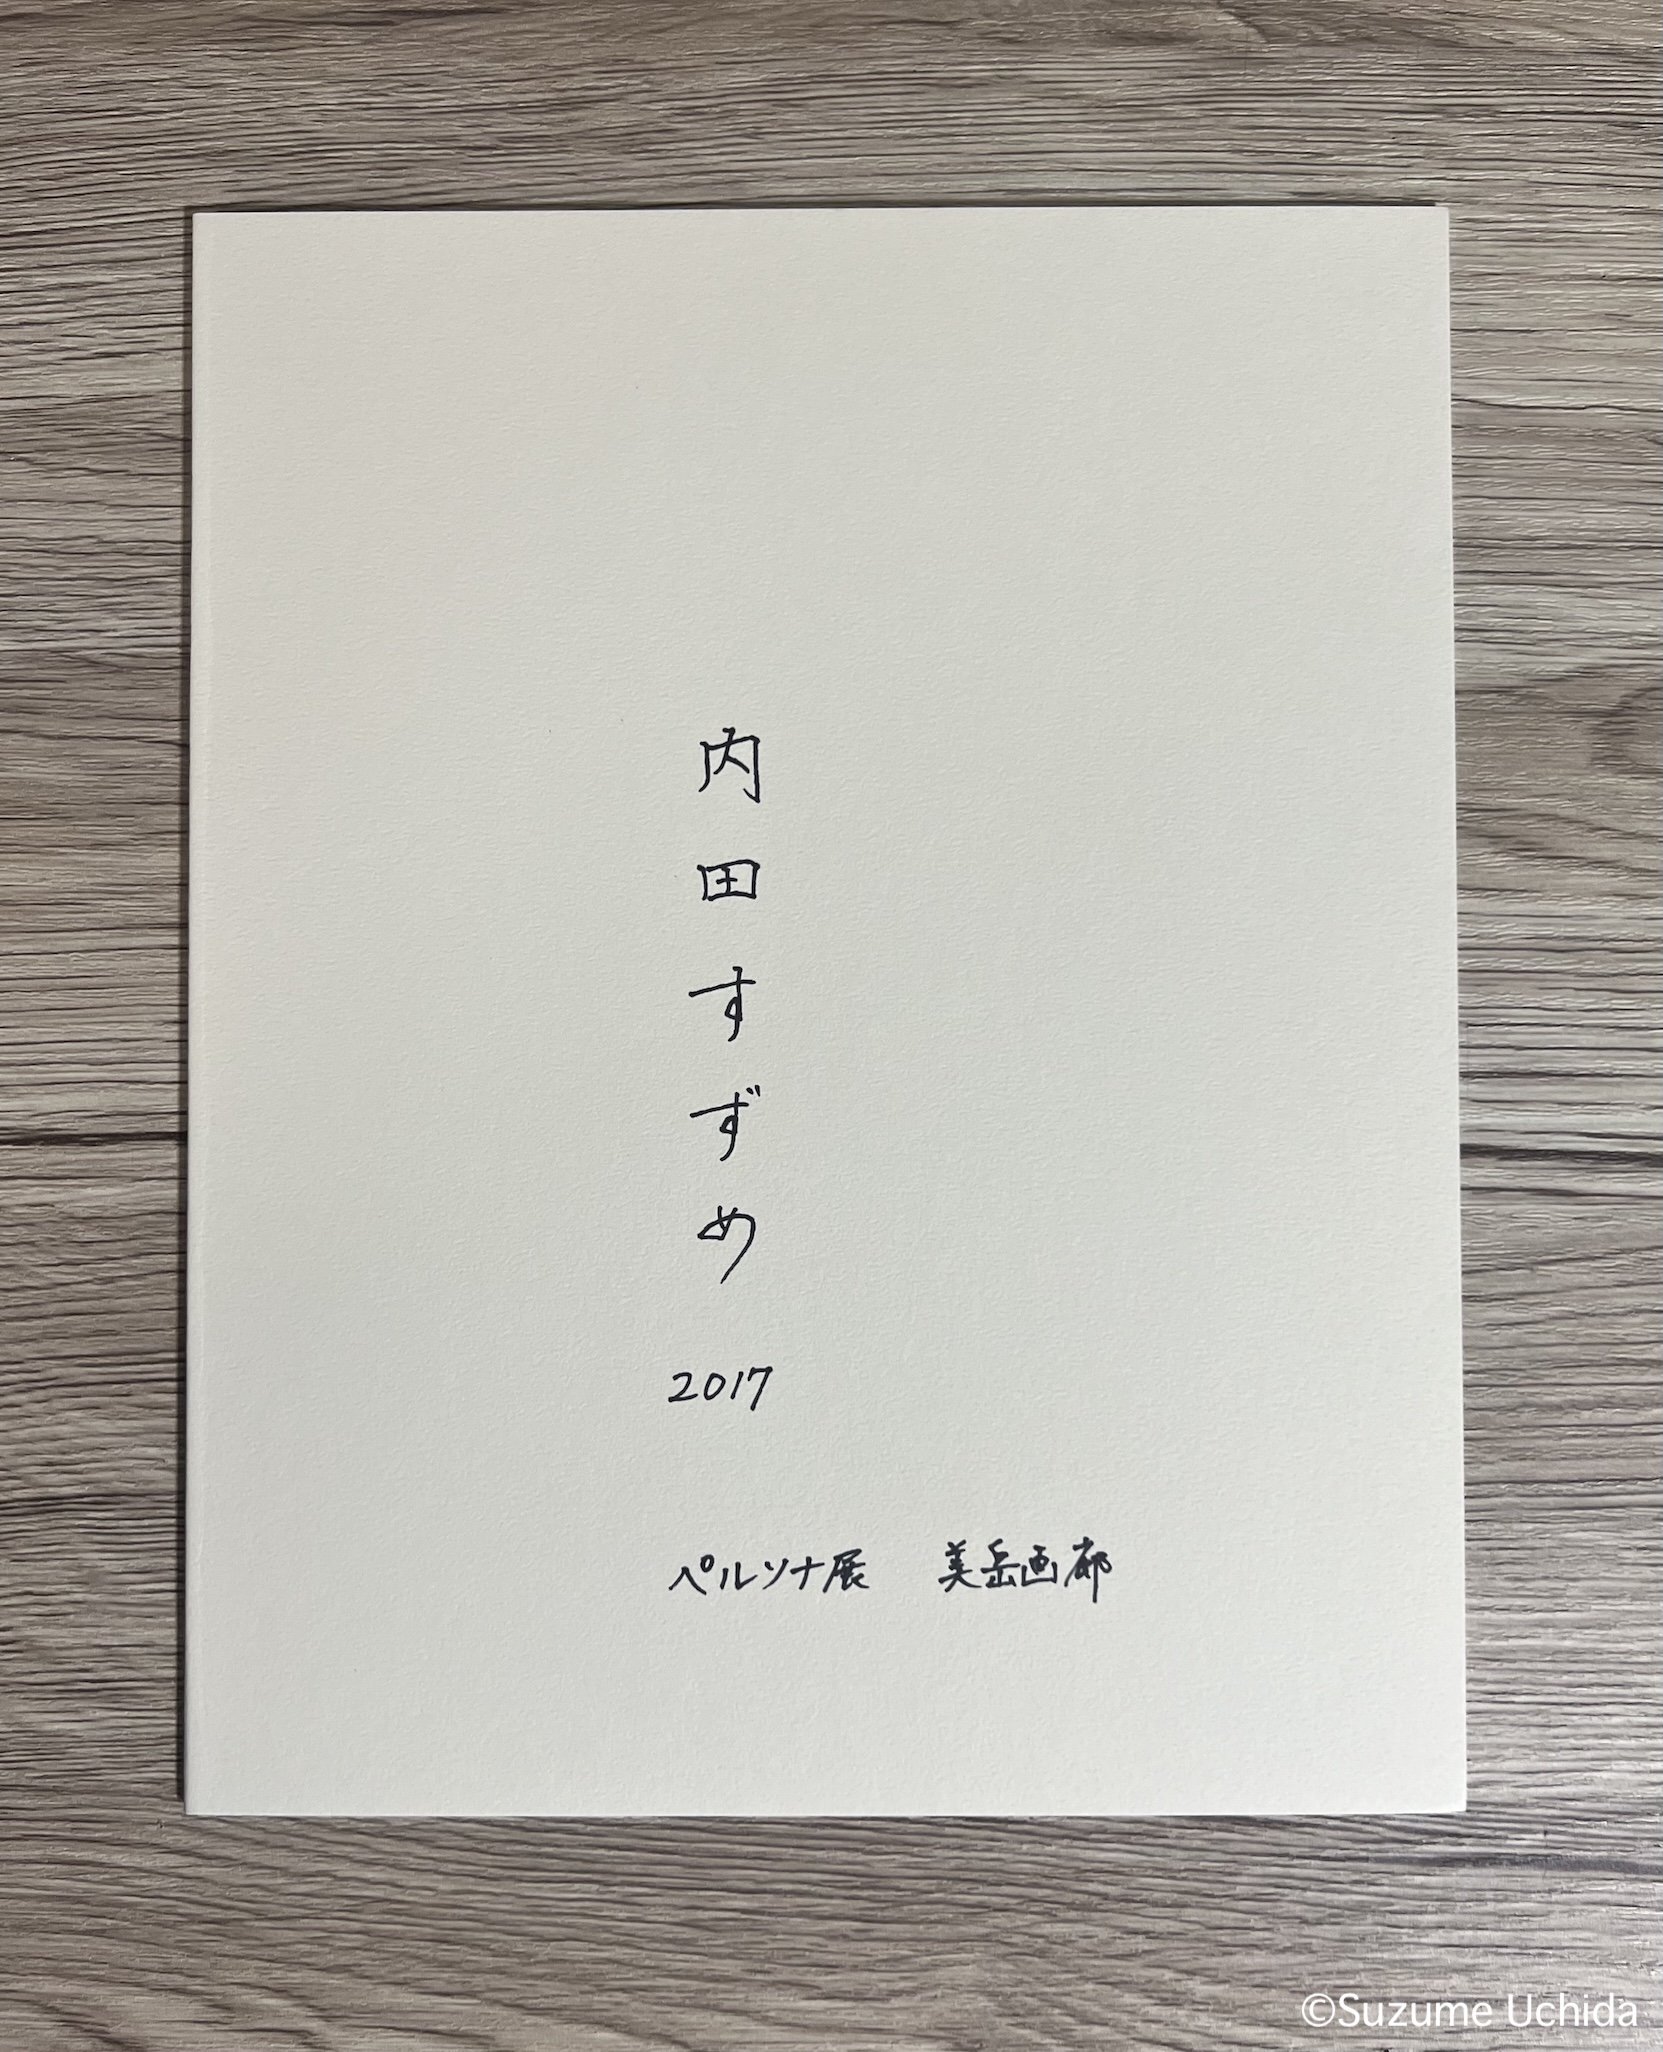 内田すずめ
2017
ペルソナ展 美岳画廊
©Suzume Uchida